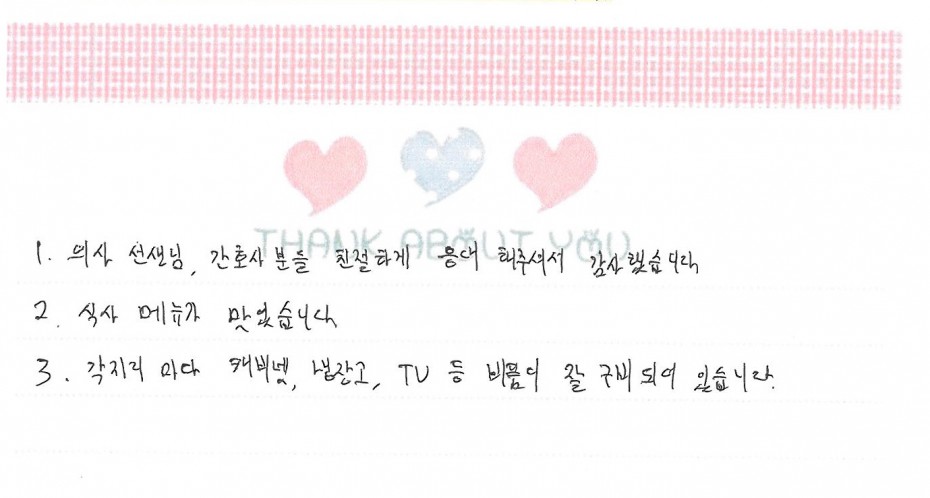 THANK ABOUT YOU
1. 의사 선생님, 간호사분들 친절하게 응대 해주셔서 감사했습니다
2. 식사 메뉴가 맛있습니다
3. 각자리 마다 캐비넷, 냉장고, TV 등 비품이 잘 구비 되어 있습니다.